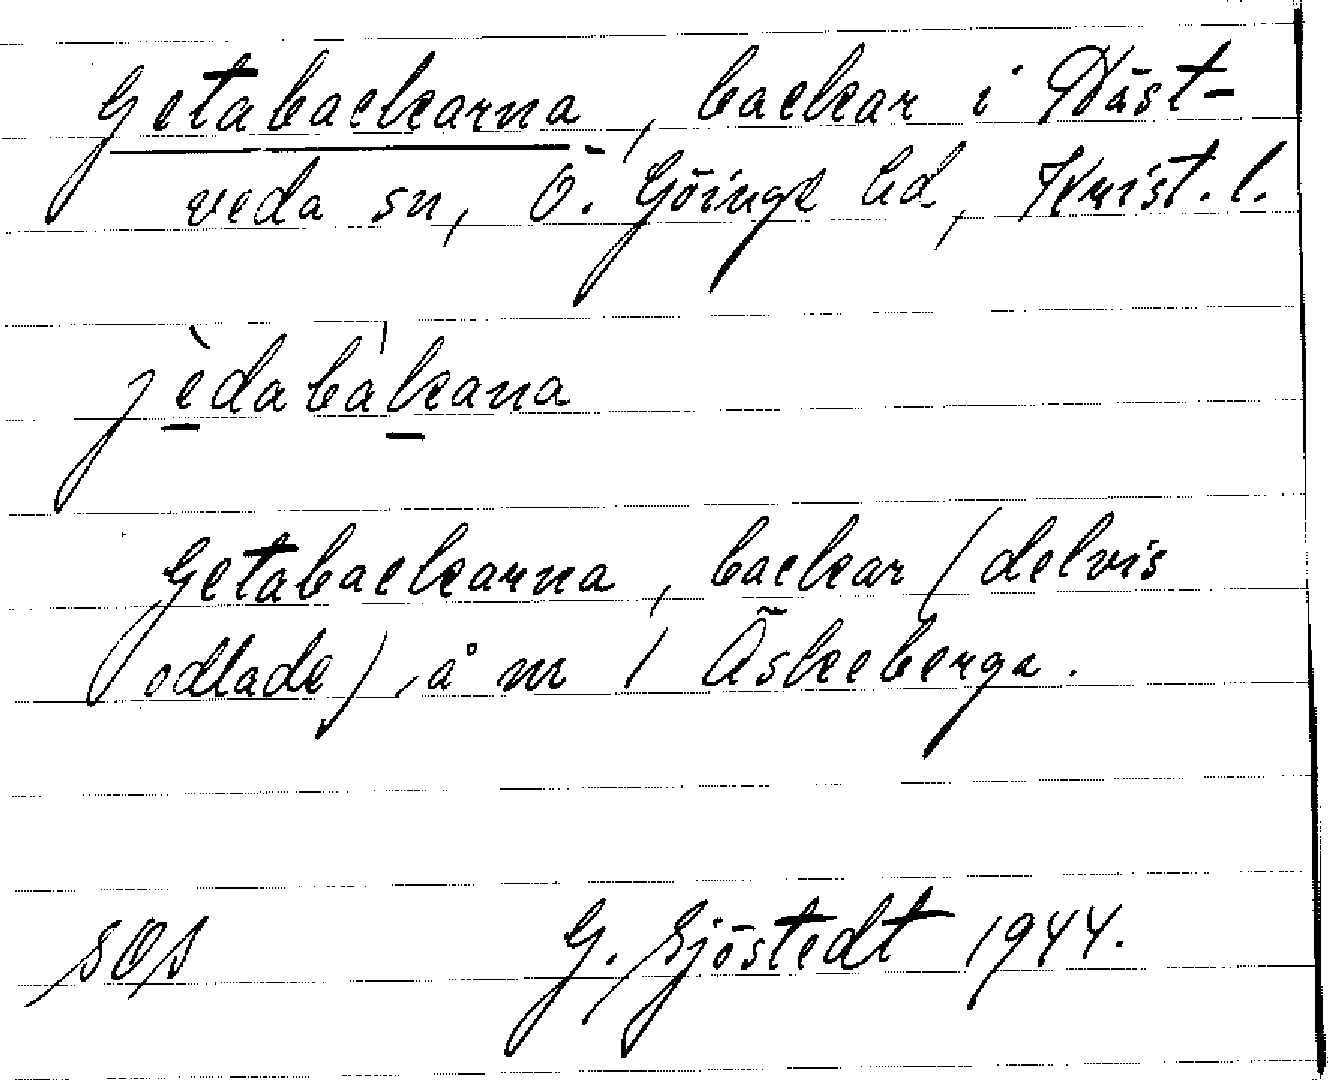 Getabackarna, backar i Häst-
veda sn, Ö. Göinge hd, Krist. l.
jèdabàkana
Getabackarna, backar (delvis
odlade), å nr 1 Äskeberga.
SOS G. Sjöstedt 1944.